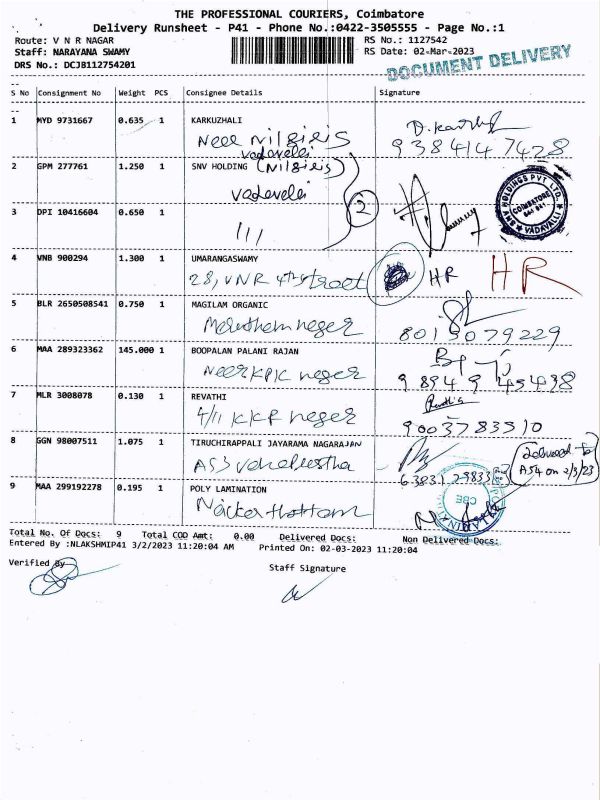 THE PROFESSIONAL COURIERS, Coimbatore
Delivery Runsheet - P41 - Phone No.:0422-3505555 - Page No.:1
Route: V N R NAGAR
RS No.: 1127542
Staff: NARAYANA SWAMY
RS Date: 02-Mar-2023
DRS No.: DCJB112754201
DOCUMENT DELIVERY
S No Consignment No Weight PCS Consignee Details Signature
1 MYD 9731667 0.635 1 KARKUZHALI
Near Nilgiris
vadavelei
9384147428
2 GPM 277761 1.250 1 SNV HOLDING (Nilgiris)
vadavelei
2
SNV HOLDINGS PVT LTD.
COIMBATORE
641 041
VADAVALLI
3 DPI 10416604 0.650 1
111
4 VNB 900294 1.300 1 UMARANGASWAMY
28, VNR 4th street
HR HR
5 BLR 2650508541 0.750 1 MAGILAM ORGANIC
neger
8015079229
6 MAA 289323362 145.000 1 BOOPALAN PALANI RAJAN
Near KPK neger
98949 45438
7 MLR 3008078 0.130 1 REVATHI
4/11 KKP neger
Revathi
9003783510
8 GGN 98007511 1.075 1 TIRUCHIRAPPALI JAYARAMA NAGARAJAN
A53
63831 29833
Delivered to
A54 on 2/3/23
9 MAA 299192278 0.195 1 POLY LAMINATION
Nacker thottam
CBE
Total No. Of Docs: 9 Total COD Amt: 0.00 Delivered Docs: Non Delivered Docs:
Entered By :NLAKSHMIP41 3/2/2023 11:20:04 AM Printed On: 02-03-2023 11:20:04
Verified By
Staff Signature